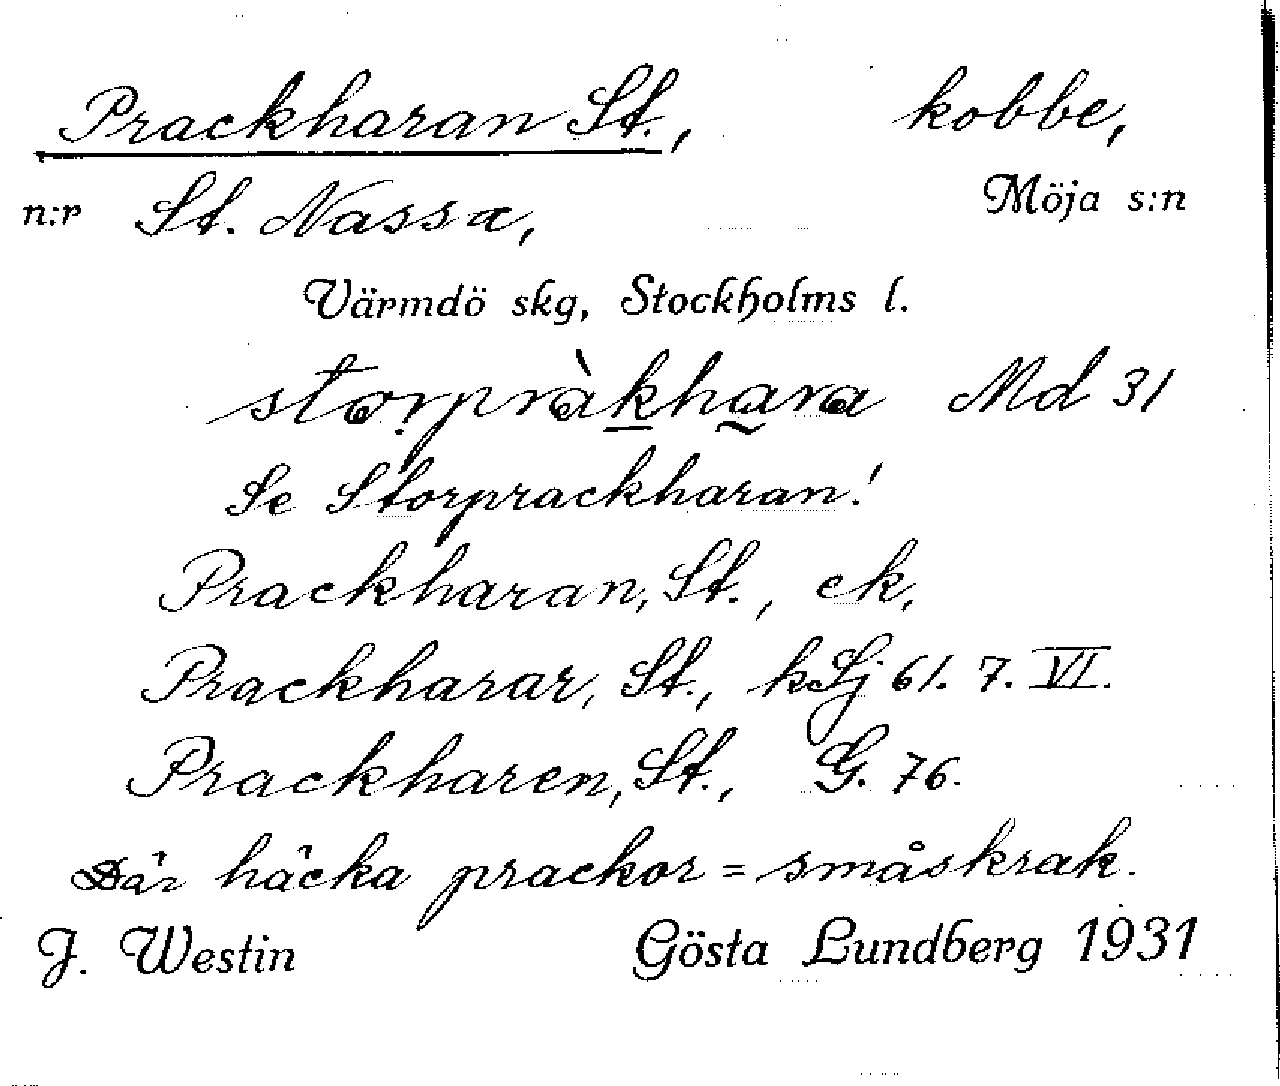 Prackharan St., kobbe,
n:r St. Nassa, Möja s:n
Värmdö skg, Stockholms l.
storpràkhara Md 31
Se Storprackharan!
Prackharan, St., ek,
Prackharar, St., kSj 61. 7. VI.
Prackharen, St., G. 76.
Där häcka prackor = småskrak.
J. Westin Gösta Lundberg 1931